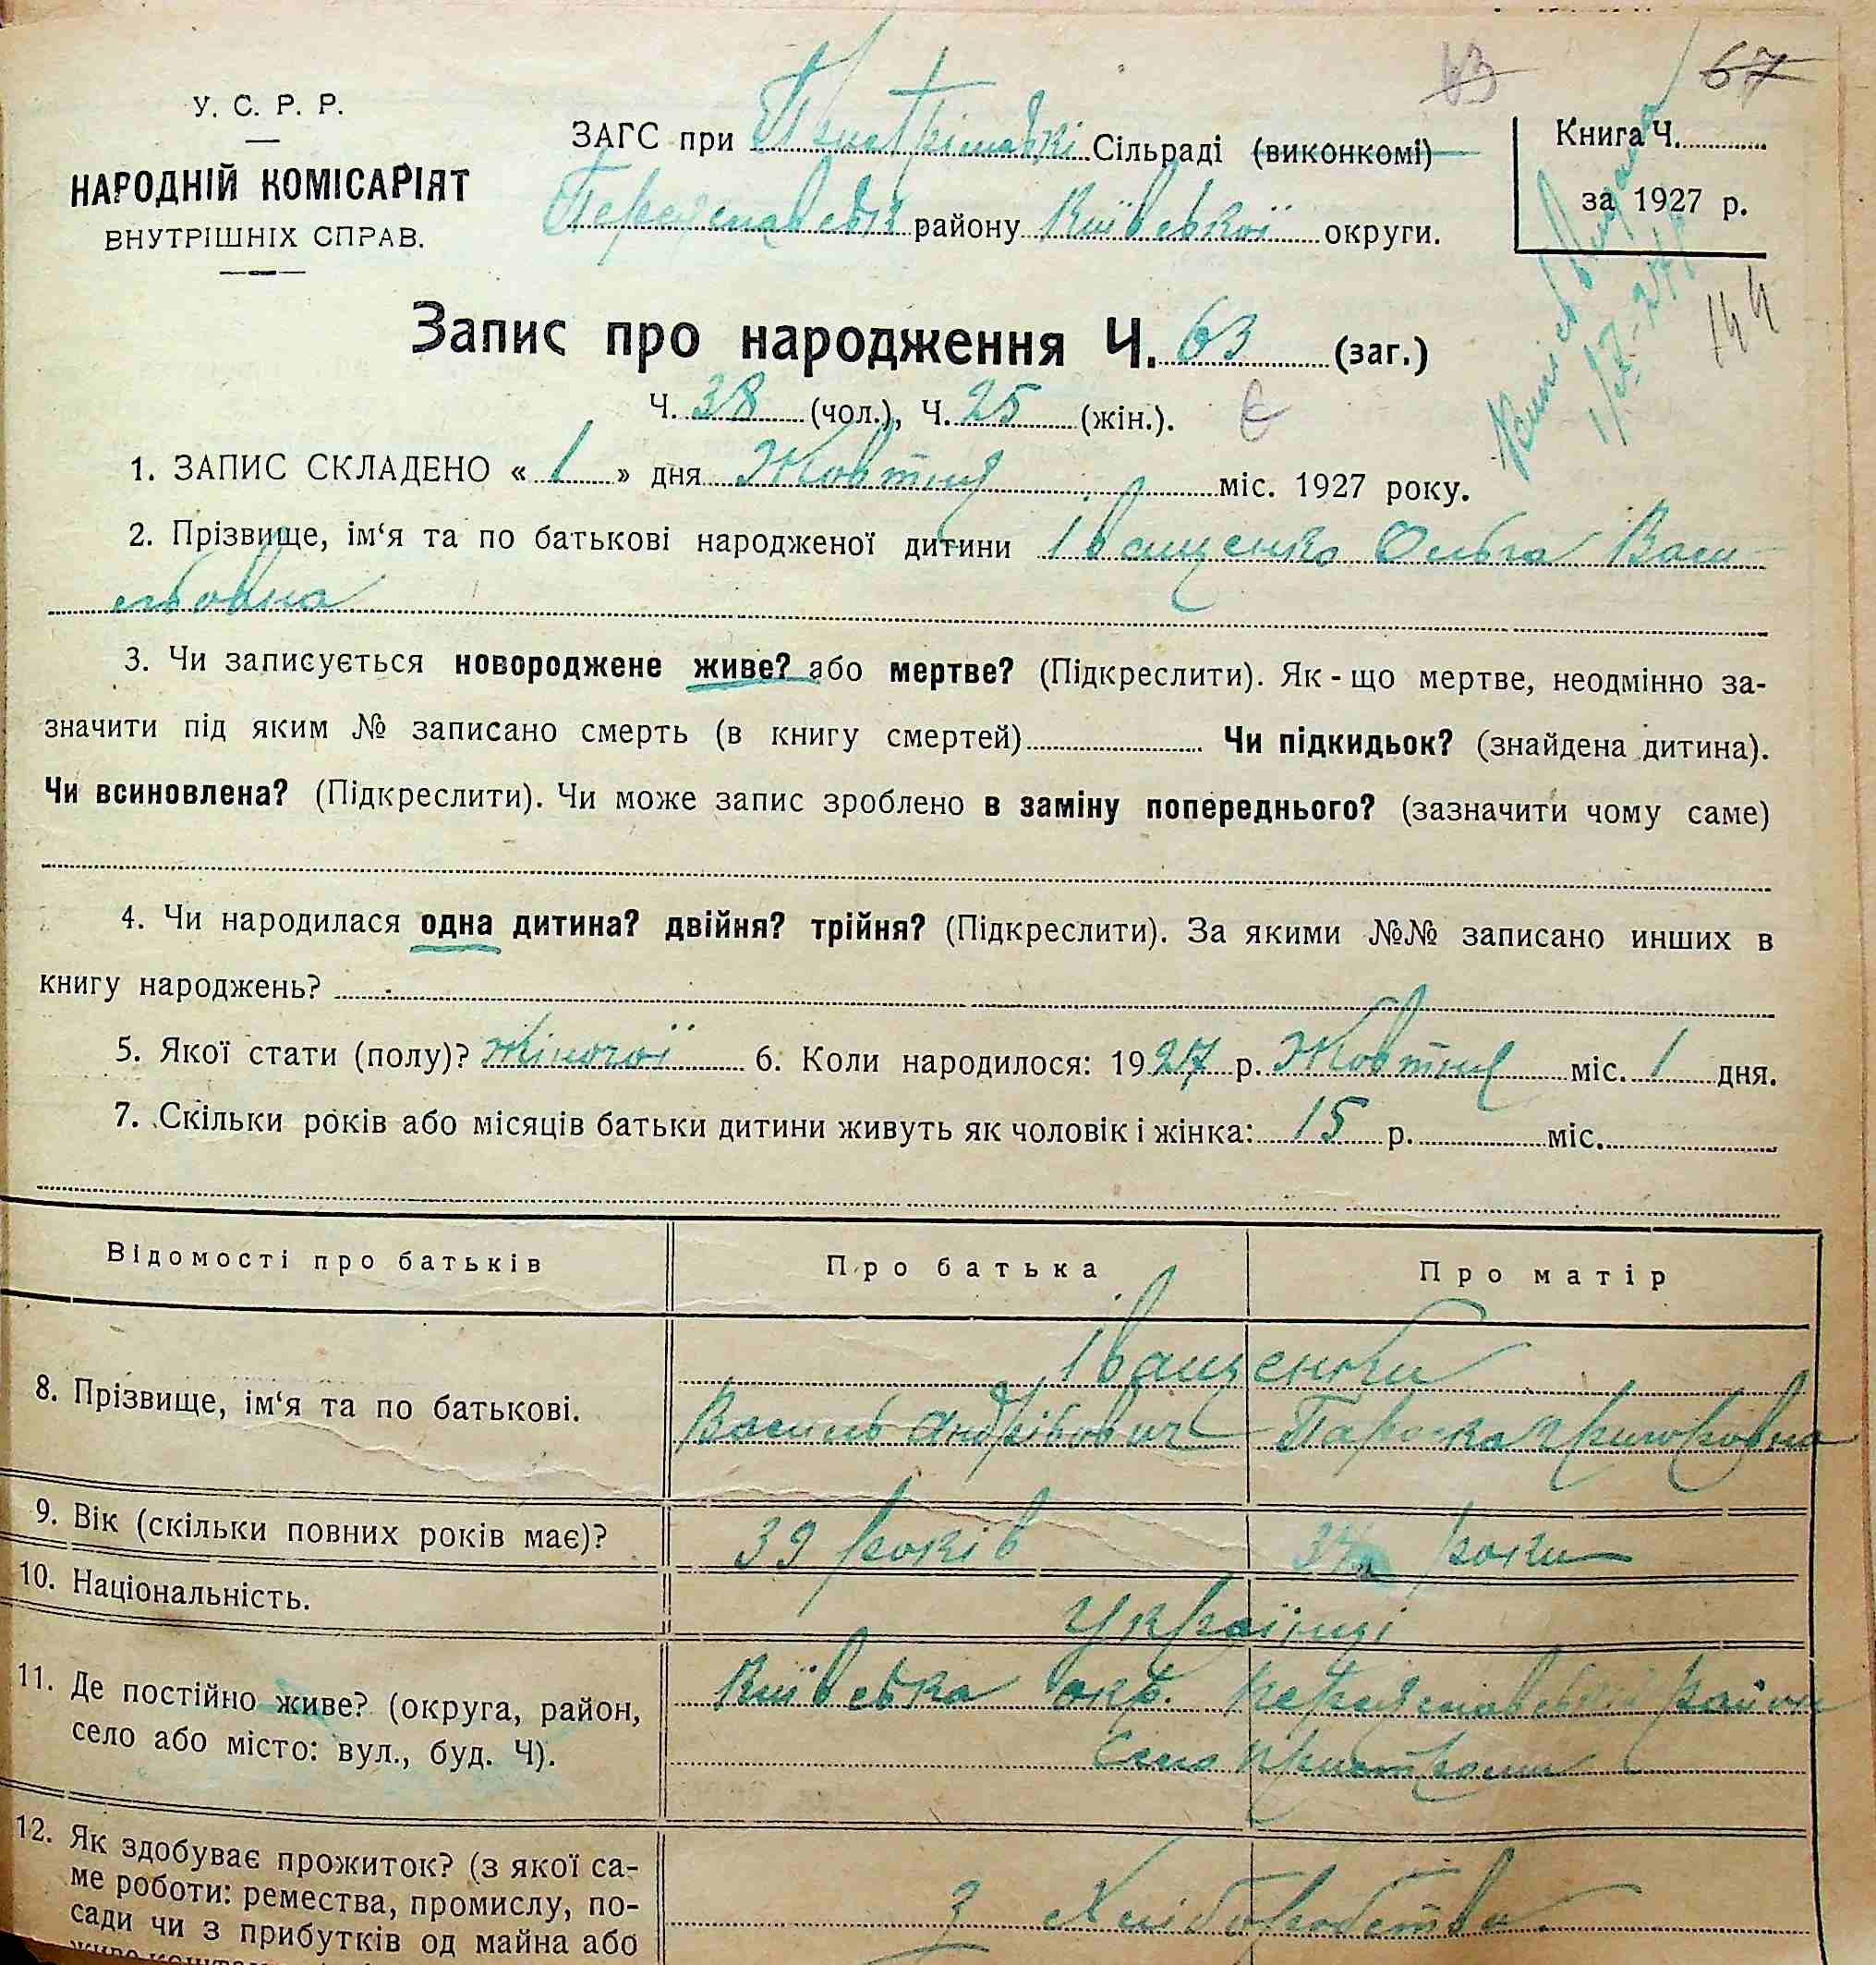 67
63
У. С. Р. Р.
НАРОДНІЙ КОМІСАРІЯТ
ВНУТРІШНІХ СПРАВ.
ЗАГС при Сільраді (виконкомі)
Переяславськ району Київської округи.
Книга Ч.
за 1927 р.
144
Запис про народження Ч. 63 (заг.)
Ч. 38 (чол.), Ч. 25 (жін.).
1. ЗАПИС СКЛАДЕНО « 1 » дня Жовтня міс. 1927 року.
2. Прізвище, ім‘я та по батькові народженої дитини Іващенко Ольга Васи-
льовна
3. Чи записується новороджене живе? або мертве? (Підкреслити). Як - що мертве, неодмінно за-
значити під яким № записано смерть (в книгу смертей) Чи підкидьок? (знайдена дитина).
Чи всиновлена? (Підкреслити). Чи може запис зроблено в заміну попереднього? (зазначити чому саме)
4. Чи народилася одна дитина? двійня? трійня? (Підкреслити). За якими №№ записано инших в
книгу народжень?
5. Якої стати (полу)? Жіночої 6. Коли народилося: 1927 р. Жовтня міс. 1 дня.
7. Скільки років або місяців батьки дитини живуть як чоловік і жінка: 15 р. міс.
Відомості про батьків Про батька Про матір
Іващенки
8. Прізвище, ім‘я та по батькові. Василь Андрійович Параска Григоровна
9. Вік (скільки повних років має)? 39 років роки
10. Національність. Українці
11. Де постійно живе? (округа, район, Київська окр. Переяславський район
село або місто: вул., буд. Ч). Село Пристроми
12. Як здобуває прожиток? (з якої са-
ме роботи: ремества, промислу, по-
сади чи з прибутків од майна або З Хліборобства